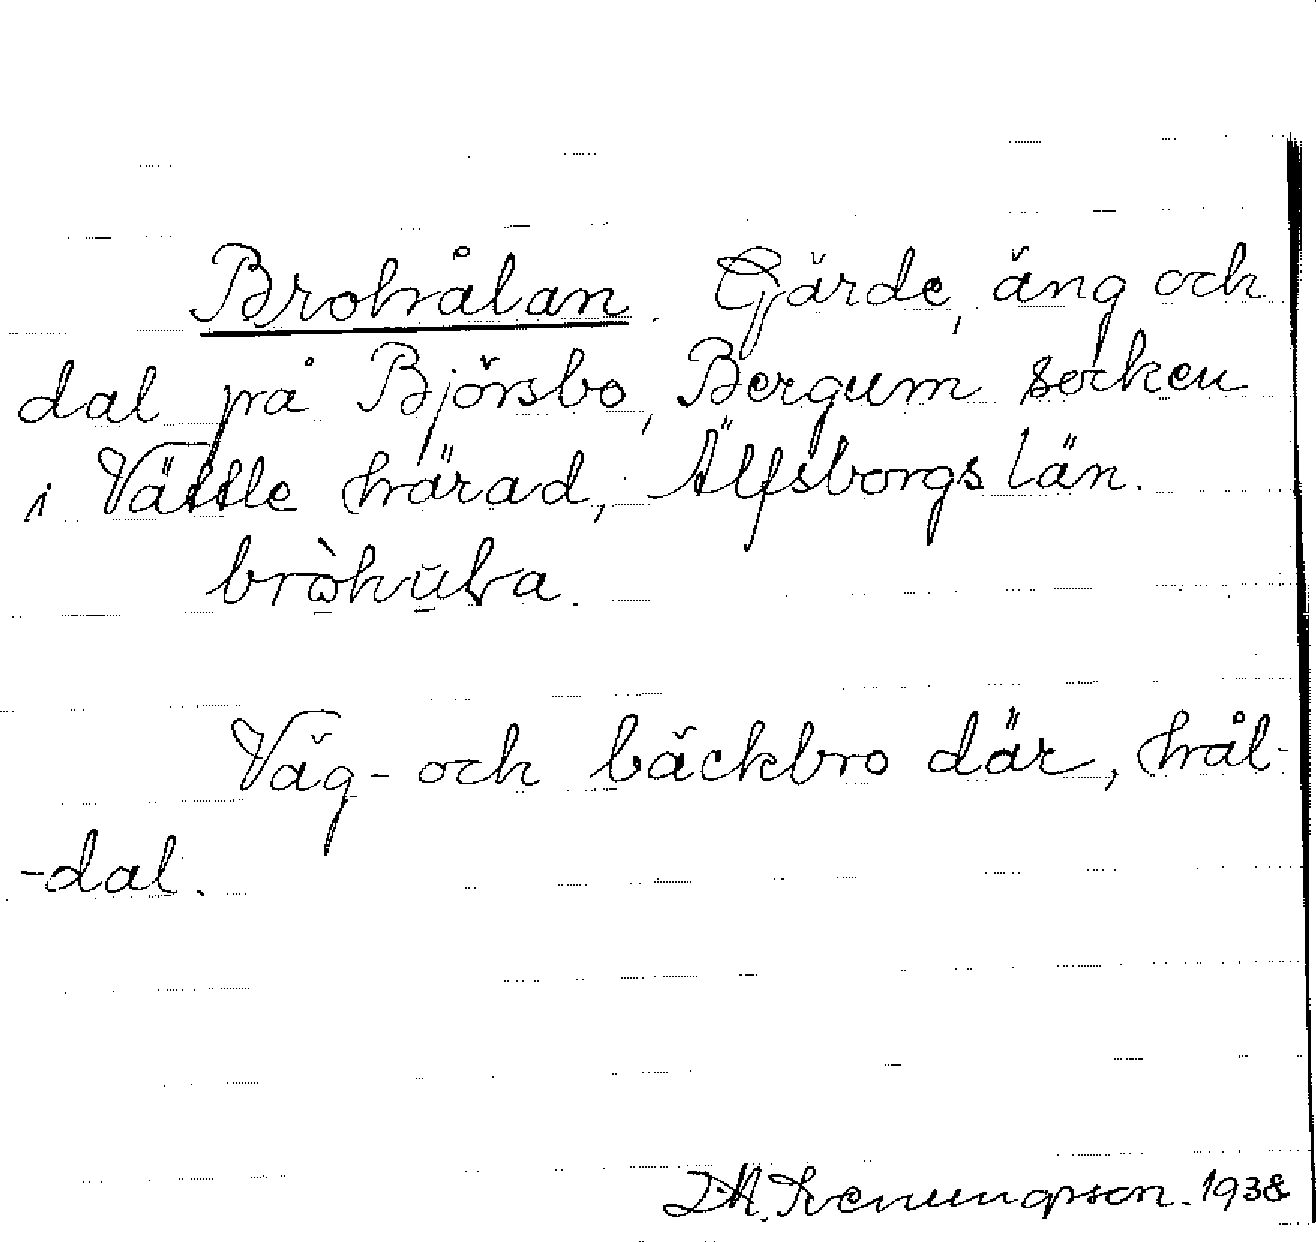 Brohålan. Gärde, äng och
dal på Björsbo, Bergum socken
i Vättle härad, Älfsborgs län.
Väg- och bäckbro där, hål-
-dal.
1938